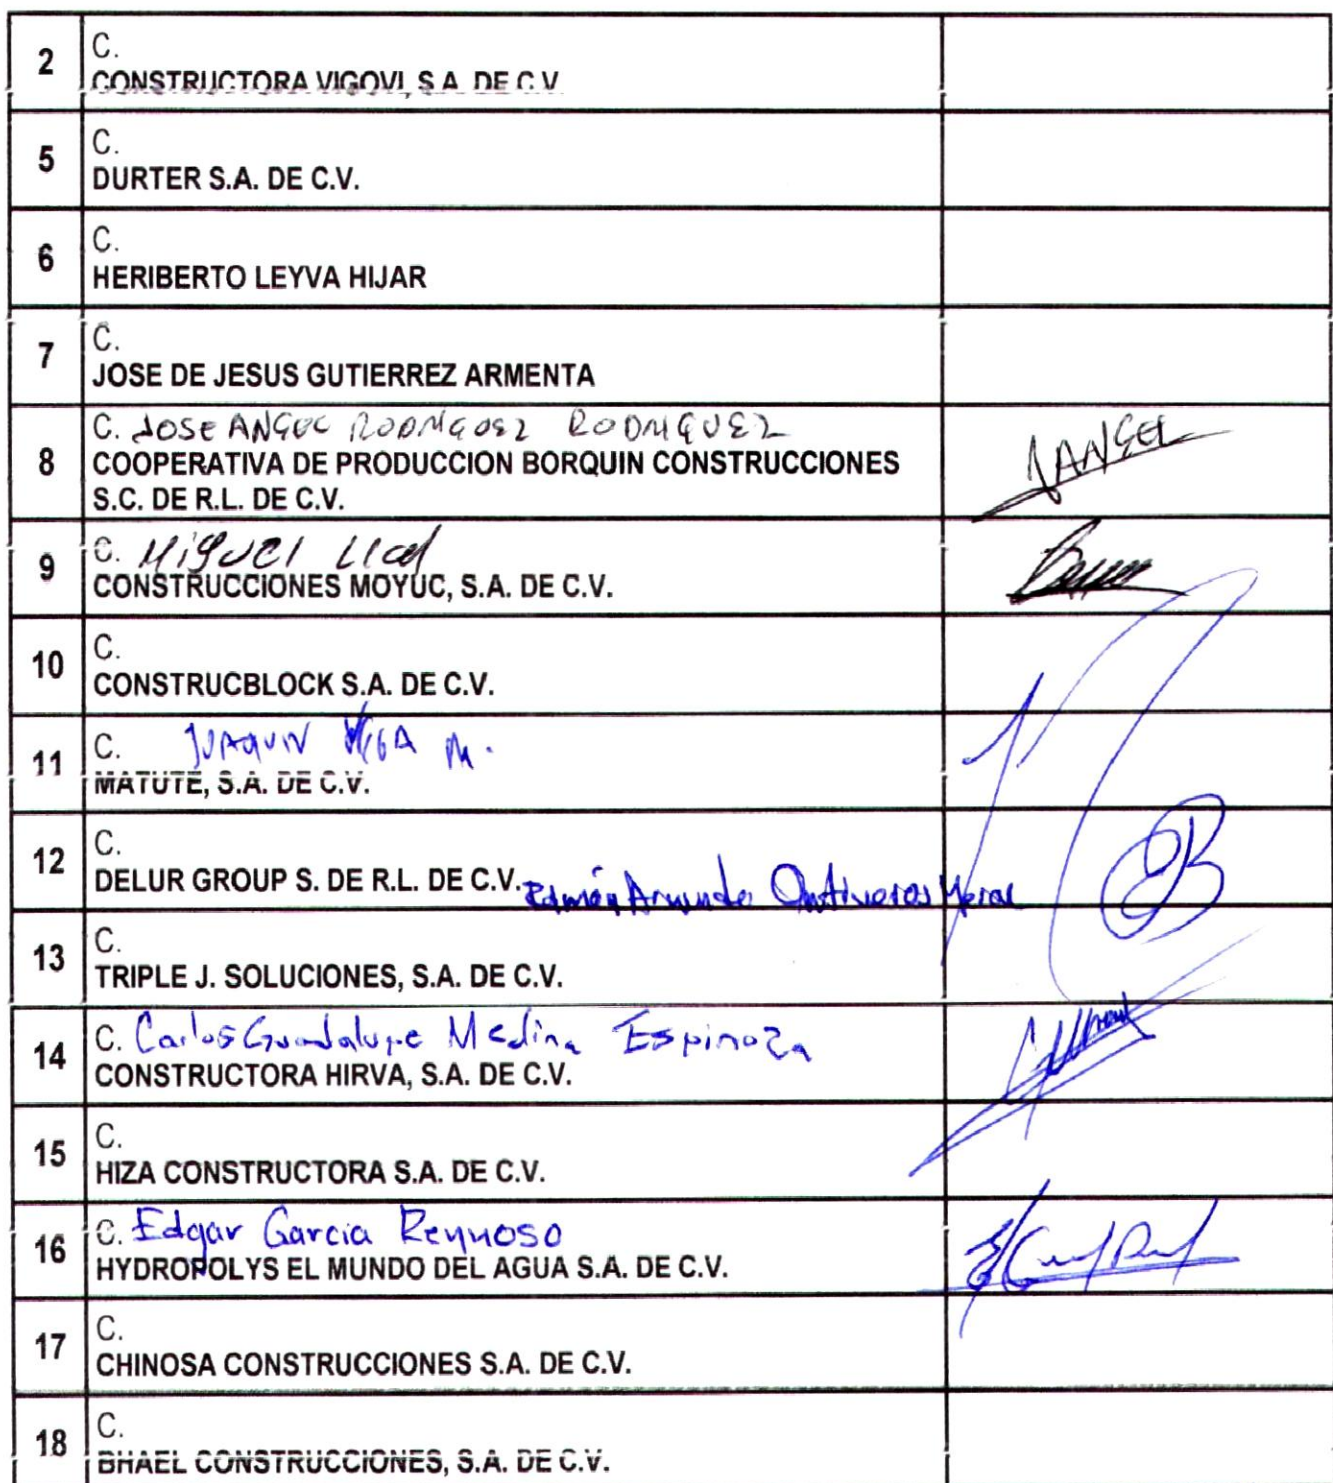 2 C.
CONSTRUCTORA VIGOVI, S.A. DE C.V
5 C.
DURTER S.A. DE C.V.
6 C.
HERIBERTO LEYVA HIJAR
7 C.
JOSE DE JESUS GUTIERREZ ARMENTA
8 C. JOSE ANGEL RODRIGUEZ RODRIGUEZ
COOPERATIVA DE PRODUCCION BORQUIN CONSTRUCCIONES
S.C. DE R.L. DE C.V.
JANGEL
9 C. Miguel
CONSTRUCCIONES MOYUC, S.A. DE C.V.
10 C.
CONSTRUCBLOCK S.A. DE C.V.
11 C. JUAQUIN VEGA M.
MATUTE, S.A. DE C.V.
12 C.
DELUR GROUP S. DE R.L. DE C.V.
Ramón Armando Ontiveros
13 C.
TRIPLE J. SOLUCIONES, S.A. DE C.V.
14 C. Carlos Guadalupe Medina Espinoza
CONSTRUCTORA HIRVA, S.A. DE C.V.
15 C.
HIZA CONSTRUCTORA S.A. DE C.V.
16 C. Edgar Garcia Reynoso
HYDROPOLYS EL MUNDO DEL AGUA S.A. DE C.V.
17 C.
CHINOSA CONSTRUCCIONES S.A. DE C.V.
18 C.
BHAEL CONSTRUCCIONES, S.A. DE C.V.